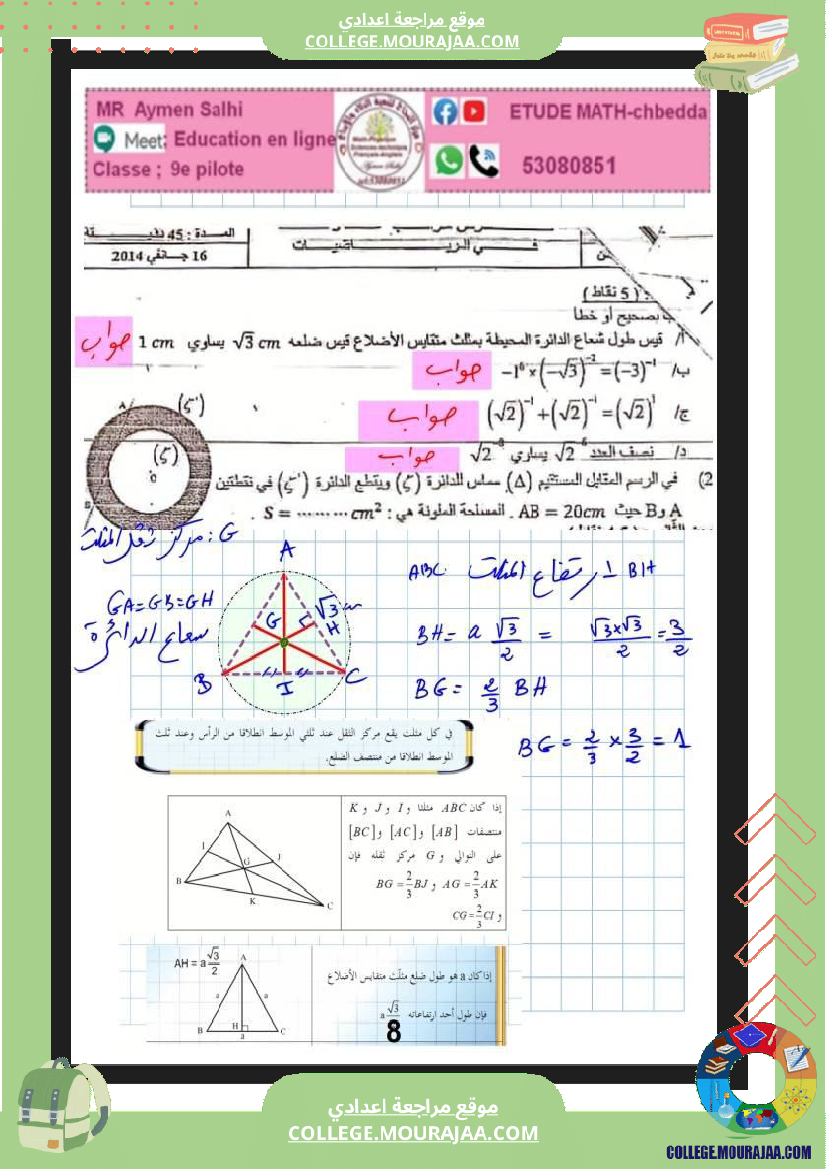 موقع مراجعة اعدادي
COLLEGE.MOURAJAA.COM
MR Aymen Salhi
Meet: Education en ligne
Classe ; 9e pilote
ETUDE MATH-chbedda
53080851
المدة : 45 دقيقة
في الريـــاضيـــات
16 جانفي 2014
( 5 نقاط )
بصحيح أو خطأ
أ/ قيس طول شعاع الدائرة المحيطة بمثلث متقايس الأضلاع قيس ضلعه √3 cm يساوي 1 cm صواب
ب/ -1⁶×(-√3)⁻²=(-3)⁻¹ صواب
ج/ (√2)⁻¹+(√2)⁻¹=(√2)¹ صواب
د/ نصف العدد √2⁻⁶ يساوي √2⁻⁸ صواب
(ζ')
(ζ)
2) في الرسم المقابل المستقيم (Δ) مماس للدائرة (ζ) ويقطع الدائرة (ζ') في نقطتين
A و B حيث AB = 20cm . المساحة الملونة هي : S = ········· cm² .
G : مركز ثقل المثلث
GA=GB=GH
شعاع الدائرة
A
√3 cm
G
H
B
I
C
BH ارتفاع المثلث ABC
BH = a √3/2 = √3×√3/2 = 3/2
BG = 2/3 BH
BG = 2/3 × 3/2 = 1
في كل مثلث يقع مركز الثقل عند ثلثي الموسط انطلاقا من الرأس وعند ثلث
الموسط انطلاقا من منتصف الضلع.
A
I
J
G
B
K
C
إذا كان ABC مثلثا و I و J و K
منتصفات [AB] و [AC] و [BC]
على التوالي و G مركز ثقله فإن
BG = 2/3 BJ و AG = 2/3 AK
و CG = 2/3 CI
AH = a √3/2
A
a
a
B
H
C
a
إذا كان a هو طول ضلع مثلّث متقايس الأضلاع
فإن طول أحد ارتفاعاته a √3
8
موقع مراجعة اعدادي
COLLEGE.MOURAJAA.COM
COLLEGE.MOURAJAA.COM